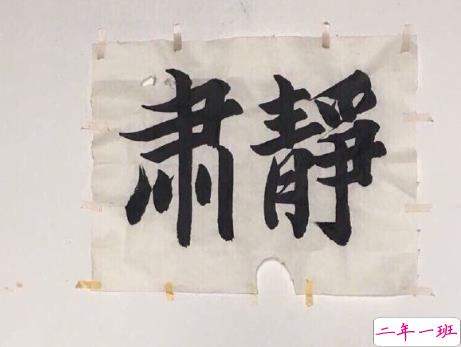 肅靜
二年一班